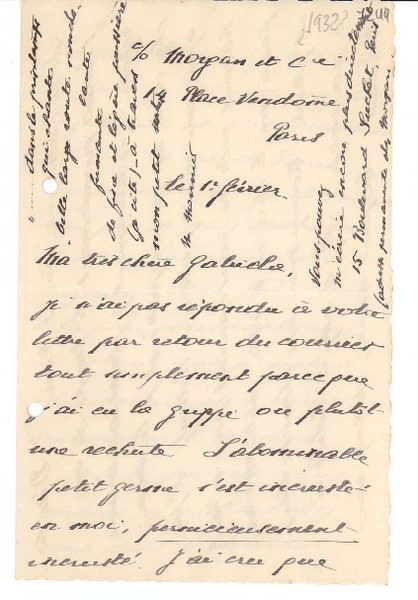 [1932]
1249
c/o Morgan et Cie
14 Place Vendôme
Paris
le 1er février.
Ma très chère Gabriela,
je n'ai pas répondu à votre
lettre par retour du courrier
tout simplement parce que
j'ai eu la grippe ou plutôt
une rechute. L'abominable
petit germe s'est incrusté
en moi, pernicieusement
incrusté. J'ai cru que
"..... dans le printemps
qui chante
belle large route ronde
fumante
de fine et légère poussière
mon petit
Vous pouvez
m'écrire encore
15 Boulevard Suchet, Paris
adresse permanente chez Morgan.